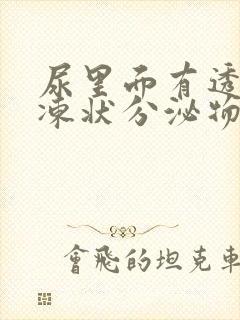 尿里面有透
凍状分泌物
會飛的坦克車